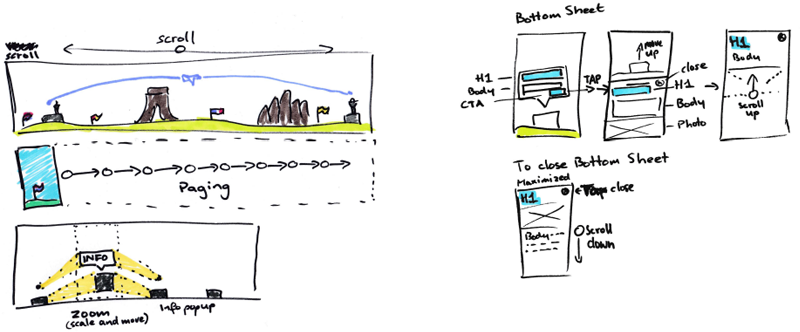 scroll
scroll
Paging
INFO
Zoom
(scale and move)
Info popup
Bottom Sheet
H1
Body
CTA
TAP
move
up
close
H1
Body
Photo
H1
Body
scroll
up
To close Bottom Sheet
Maximized
H1
close
Body
scroll
down